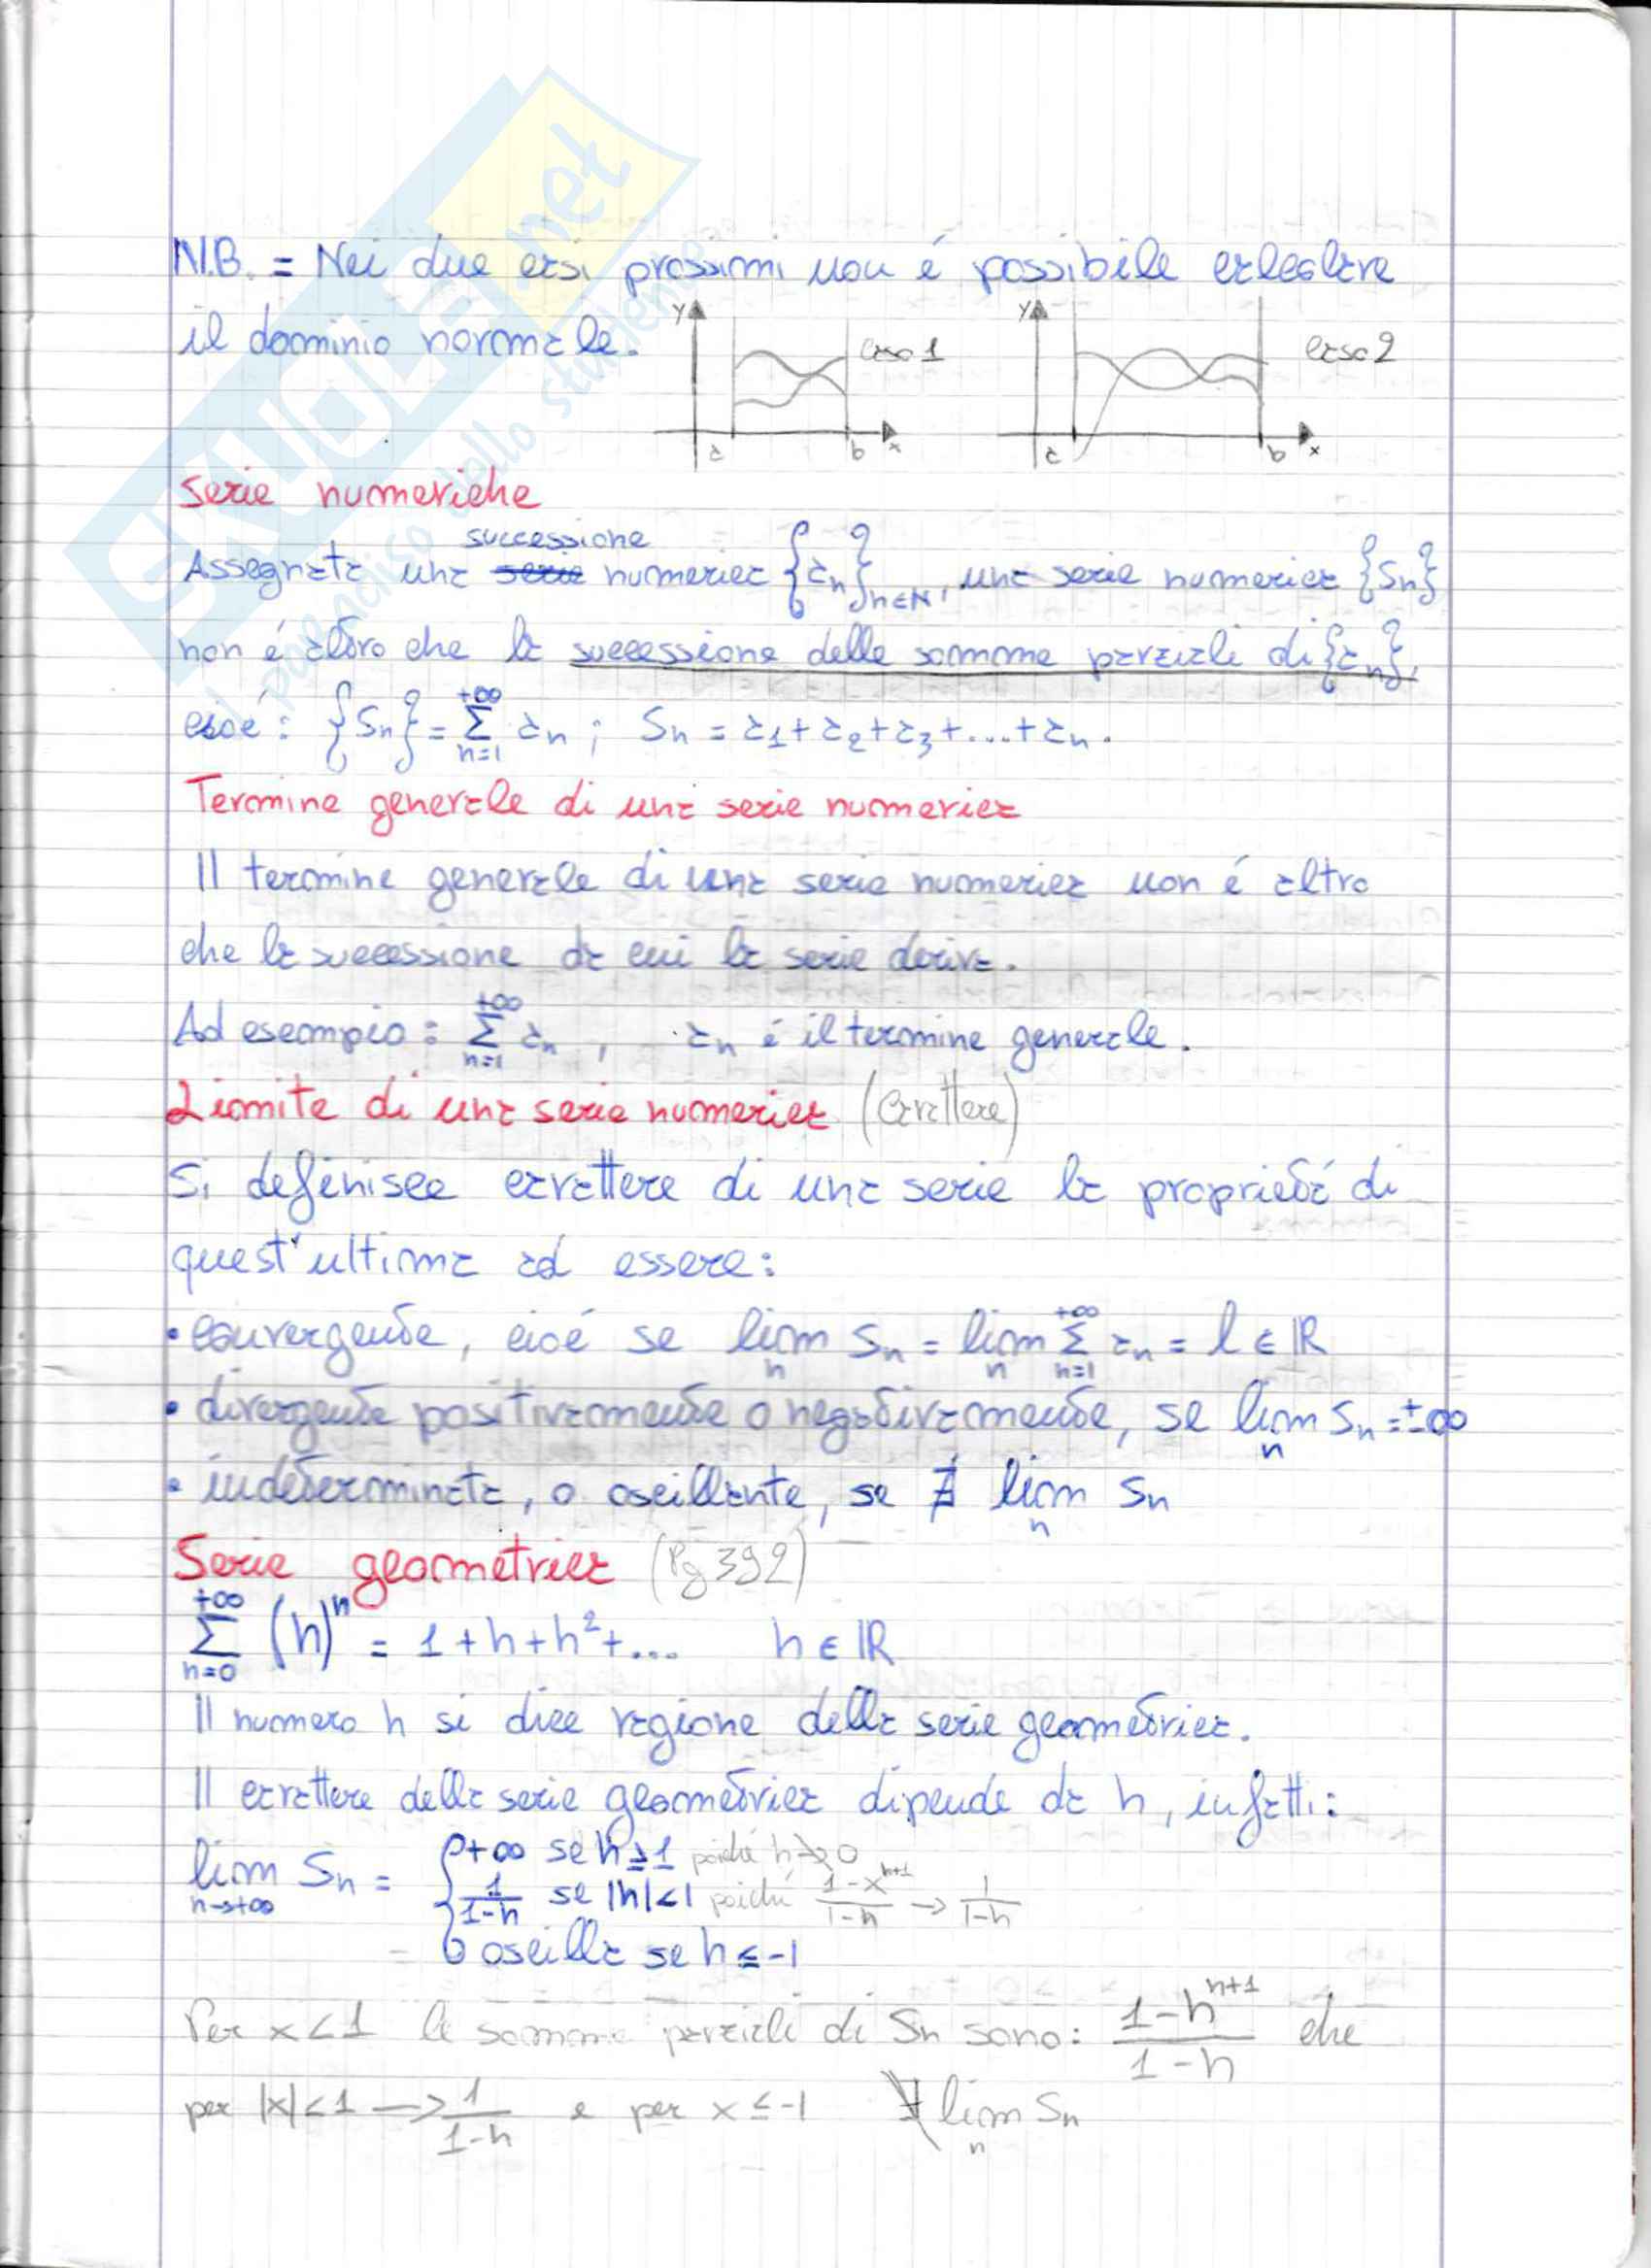 SKUOLA.net
il paradiso dello studente
N.B. = Nei due casi prossimi non é possibile calcolare
il dominio normale.
y
a
b
x
caso 1
y
a
b
x
caso 2
Serie numeriche
successione
Assegnata una serie numerica {a_n}_{n∈N}, una serie numerica {S_n}
non é altro che la successione delle somme parziali di {a_n},
cioé: {S_n} = Σ_{n=1}^{+∞} a_n ; S_n = a_1 + a_2 + a_3 + ... + a_n.
Termine generale di una serie numerica
Il termine generale di una serie numerica non é altro
che la successione da cui la serie deriva.
Ad esempio: Σ_{n=1}^{+∞} a_n , a_n é il termine generale.
Limite di una serie numerica (Carattere)
Si definisce carattere di una serie la proprietá di
quest'ultima ad essere:
• convergente, cioé se lim_n S_n = lim_n Σ_{n=1}^{+∞} a_n = l ∈ ℝ
• divergente positivamente o negativamente, se lim_n S_n = ±∞
• indeterminata, o oscillante, se ∄ lim_n S_n
Serie geometrica (Pg 392)
Σ_{n=0}^{+∞} (h)^n = 1 + h + h^2 + ... h ∈ ℝ
Il numero h si dice ragione della serie geometrica.
Il carattere della serie geometrica dipende da h, infatti:
lim_{n→+∞} S_n = { +∞ se h ≥ 1 poiché h ↛ 0
1/(1-h) se |h| < 1 poiché (1-x^{n+1})/(1-h) → 1/(1-h)
= oscilla se h ≤ -1
Per x < 1 le somme parziali di S_n sono: (1-h^{n+1})/(1-h) che
per |x| < 1 → 1/(1-h) e per x ≤ -1 ∄ lim_n S_n